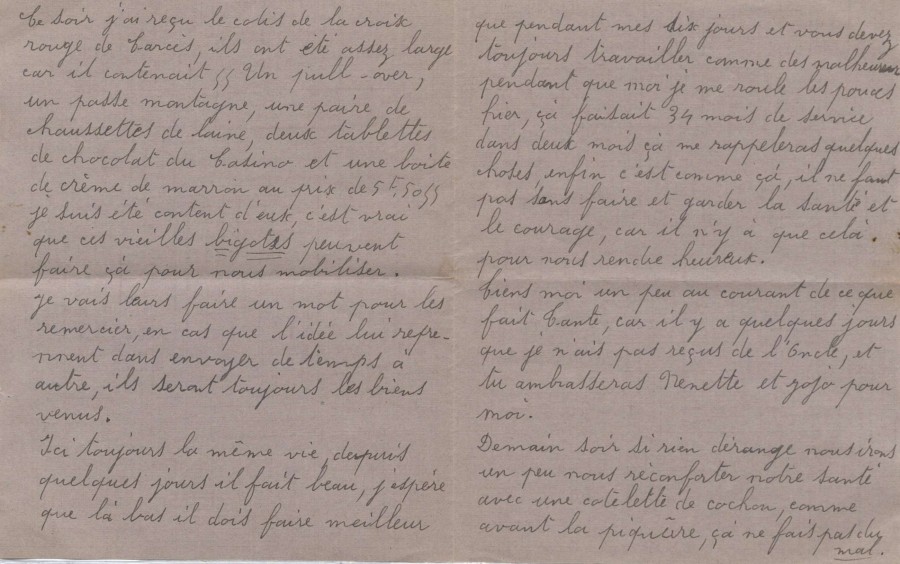 Ce soir j'ai reçu le colis de la croix
rouge de Carcès, ils ont été assez large
car il contenait §§ Un pull-over,
un passe montagne, une paire de
chaussettes de laine, deux tablettes
de chocolat du Casino et une boite
de crème de marron au prix de 5f,50 §§
je suis été content d'eux, c'est vrai
que ces vieilles bigotes peuvent
faire çà pour nous mobiliser.
je vais leurs faire un mot pour les
remercier, en cas que l'idée lui repre-
nnent dans envoyer de temps à
autre, ils seront toujours les biens
venus.
Ici toujours la même vie, depuis
quelques jours il fait beau, j'espére
que là bas il dois faire meilleur
que pendant mes dix jours et vous devez
toujours travailler comme des malheureux
pendant que moi je me roule les pouces
hier, çà faisait 34 mois de service
dans deux mois çà me rappeleras quelques
choses, enfin c'est comme çà, il ne faut
pas sans faire et garder la santé et
le courage, car il n'y à que celà.
pour nous rendre heureux.
Tiens moi un peu au courant de ce que
fait Tante, car il y a quelques jours
que je n'ais pas reçus de l'Oncle, et
tu ambrasseras Nenette et jojo pour
moi.
Demain soir si rien dérange nous irons
un peu nous réconforter notre santé
avec une cotelette de cochon, comme
avant la piquûre, çà ne fais pas du
mal.